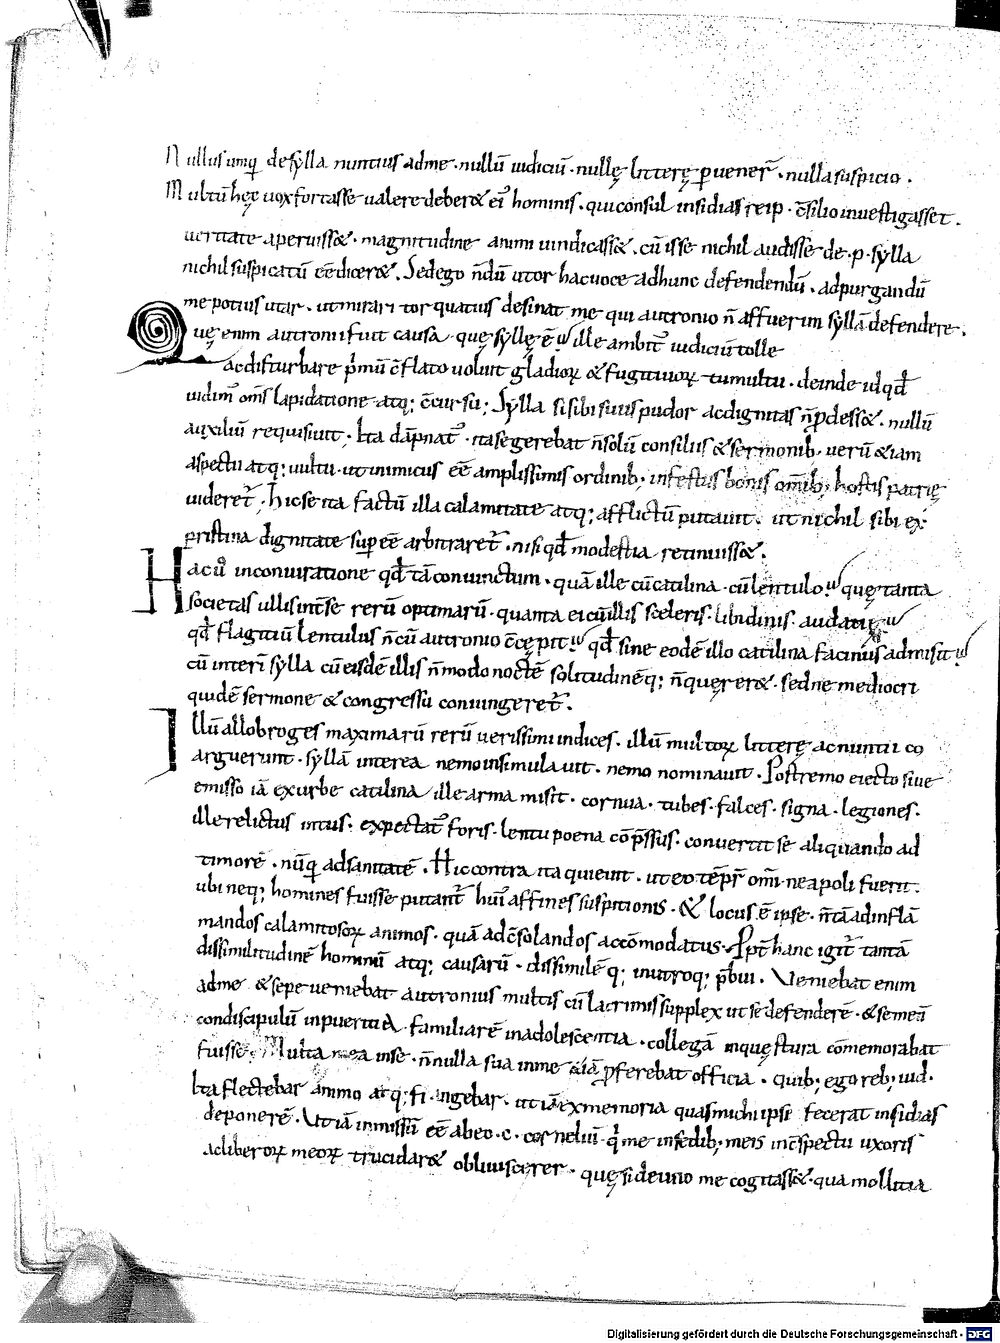 Nullus umq̄ de sylla nuntius ad me · nullū iudiciū · nullę litterę ꝑvener̄ · nulla suspicio .
Multū hęc vox fortasse valere deber& ei᷒ hominis · qui consul insidias reip · c̄silio investigasset .
veritate aperuiss& · magnitudine animi vindicass& · cū isse nichil audisse de · p · sylla
nichil suspicatū eē dicer& . Sed ego n̄dū utor hac voce ad hunc defendendū · ad purgandū
me potius utar · ut mirari torquatus desinat me qui autronio n̄ affuerim syllā defendere .
Quę enim autroni fuit causa · quę syllę ē ille ambit᷒ iudiciū tolle
ac disturbare p̄mū c̄flato voluit gladioꝝ & fugitiuoꝝ tumultu · deinde id qđ
uidim᷒ om̄s lapidatione atq; c̄cursu ; Sylla si sibi suus pudor ac dignitas n̄ ꝓdess& · nullū
auxiliū requisiuit ; Ita dāpnat᷒ · ita se gerebat n̄ solū consiliis & sermonib · verū & iam
aspectu atq; vultu · ut inimicus eē amplissimis ordinib; infestus bonis om̄ib; hostis patrię
videret᷒ · Hic se ita factū illa calamitate atq; afflictū putauit · ut nichil sibi ex
pristina dignitate suꝑ eē arbitraret᷒ · nisi qđ modestia retinuiss& .
Hac u᷒ in coniuratione qđ tā coniunctum · quā ille cū catilina · cū lentulo · quę tanta
societas ullis int̄se rerū optimarū · quanta ei cū illis sceleris · libidinis · audatię
qđ flagitiū lentulus n̄ cū autronio c̄cępit qđ sine eodē illo catilina facinus admisit
cū interī sylla cū eisdē illis n̄ modo noctē solitudinēq; n̄ quęrer& · sed ne mediocri
quidē sermone & congressu coniungeret᷒ .
Illū allobroges maximarū rerū verissimi indices · illū multoꝝ litterę ac nuntii co
arguerunt · syllā interea nemo insimulauit · nemo nominauit · Postremo eiecto siue
emisso iā ex urbe catilina ille arma misit · cornua · tubes · falces · signa · legiones .
ille relictus intus · expectat᷒ foris · lentu poena cōp̄ssus · convertit se aliquando ad
timorē · nūq̄ ad sanitatē . Hic contra ita quieuit · ut eo tēpr̄ om̄i neapoli fuerit .
ubi neq; homines fuisse putant᷒ hui᷒ affines suspitionis · & locus ē ipse · n̄ tā ad inflā
mandos calamitosoꝝ animos · quā ad c̄solandos accōmodatus · Ꝓpt̄ hanc igit᷒ tantā
dissimilitudinē hominū atq; causarū · dissimilē q; in utroq; p̄bui . Veniebat enim
ad me & sepe veniebat autronius multis cū lacrimis supplex ut se defenderē · & se meū
condiscipulū in pueritia familiarē in adolescentia · collegā in quęstura cōmemorabat
fuisse · Multa mea in se · n̄nulla sua in me &iā ꝓferebat officia · quib; ego reb; iud ·
Ita flectebar animo atq; frangebar · ut iā ex memoria quas michi ipse fecerat insidias
deponerē · Ut iā inmissū eē ab eo · c · corneliū q̄ me in sedib; meis in c̄spectu uxoris
ac liberoꝝ meoꝝ trucidar& obliuiscerer · quę si de uno me cogitass& · qua mollitia
Digitalisierung gefördert durch die Deutsche Forschungsgemeinschaft - DFG